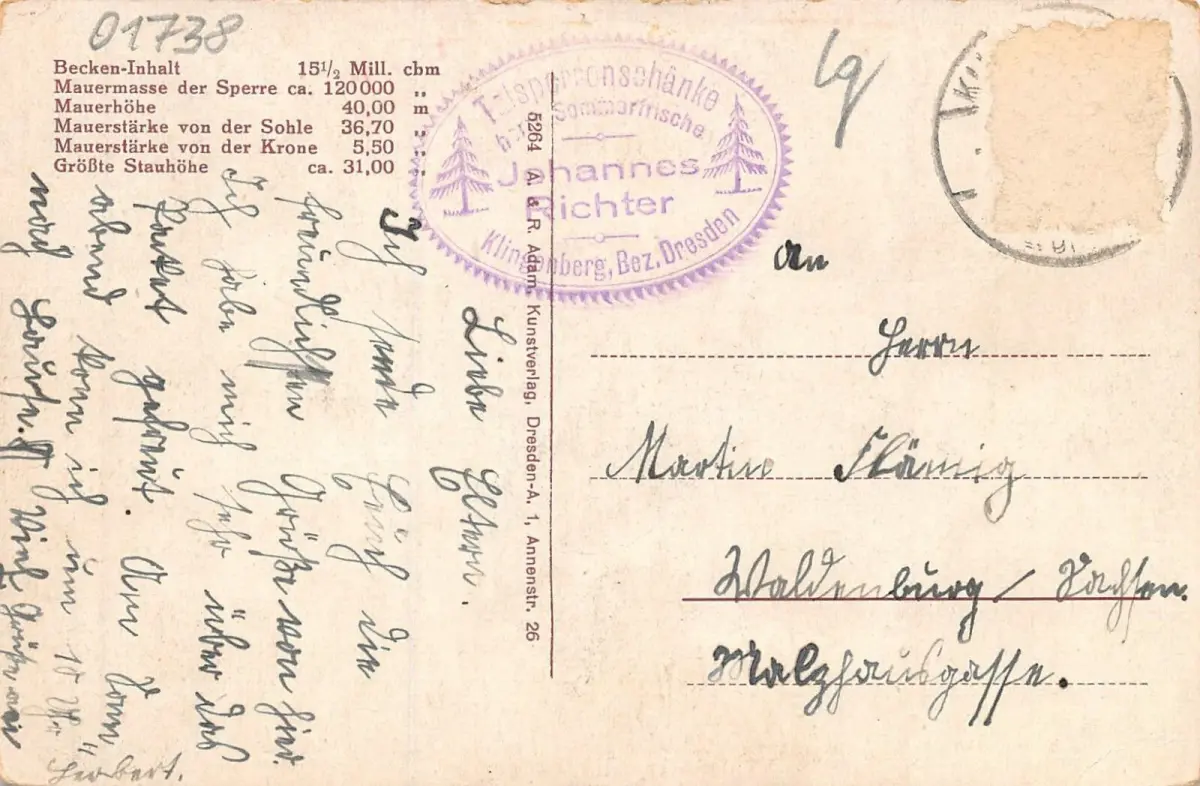 01738
Becken-Inhalt 15½ Mill. cbm
Mauermasse der Sperre ca. 120000 „
Mauerhöhe 40,00 m
Mauerstärke von der Sohle 36,70 „
Mauerstärke von der Krone 5,50 „
Größte Stauhöhe ca. 31,00 „
Talsperrenschänke
Sommerfrische
Johannes
Richter
Klingenberg, Bez. Dresden
5264 A. & R. Adam, Kunstverlag, Dresden-A. 1, Annenstr. 26
An
Herrn
Martin Flämig
Waldenburg / Sachsen.
Malzhausgasse.
Liebe Eltern.
Ich sende Euch die
freundlichsten Grüße von hier.
Ich habe mich sehr über das
Paket gefreut. Am Sonn
abend kann ich um 10
nach Hause. Viele Grüße
Herbert.